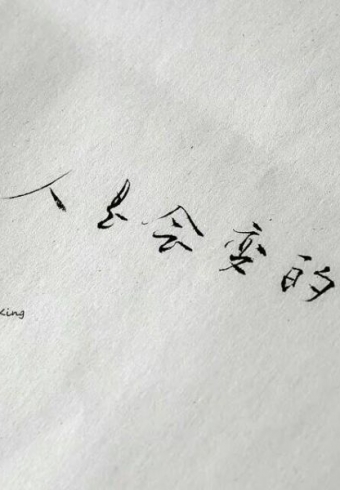 人是会变的